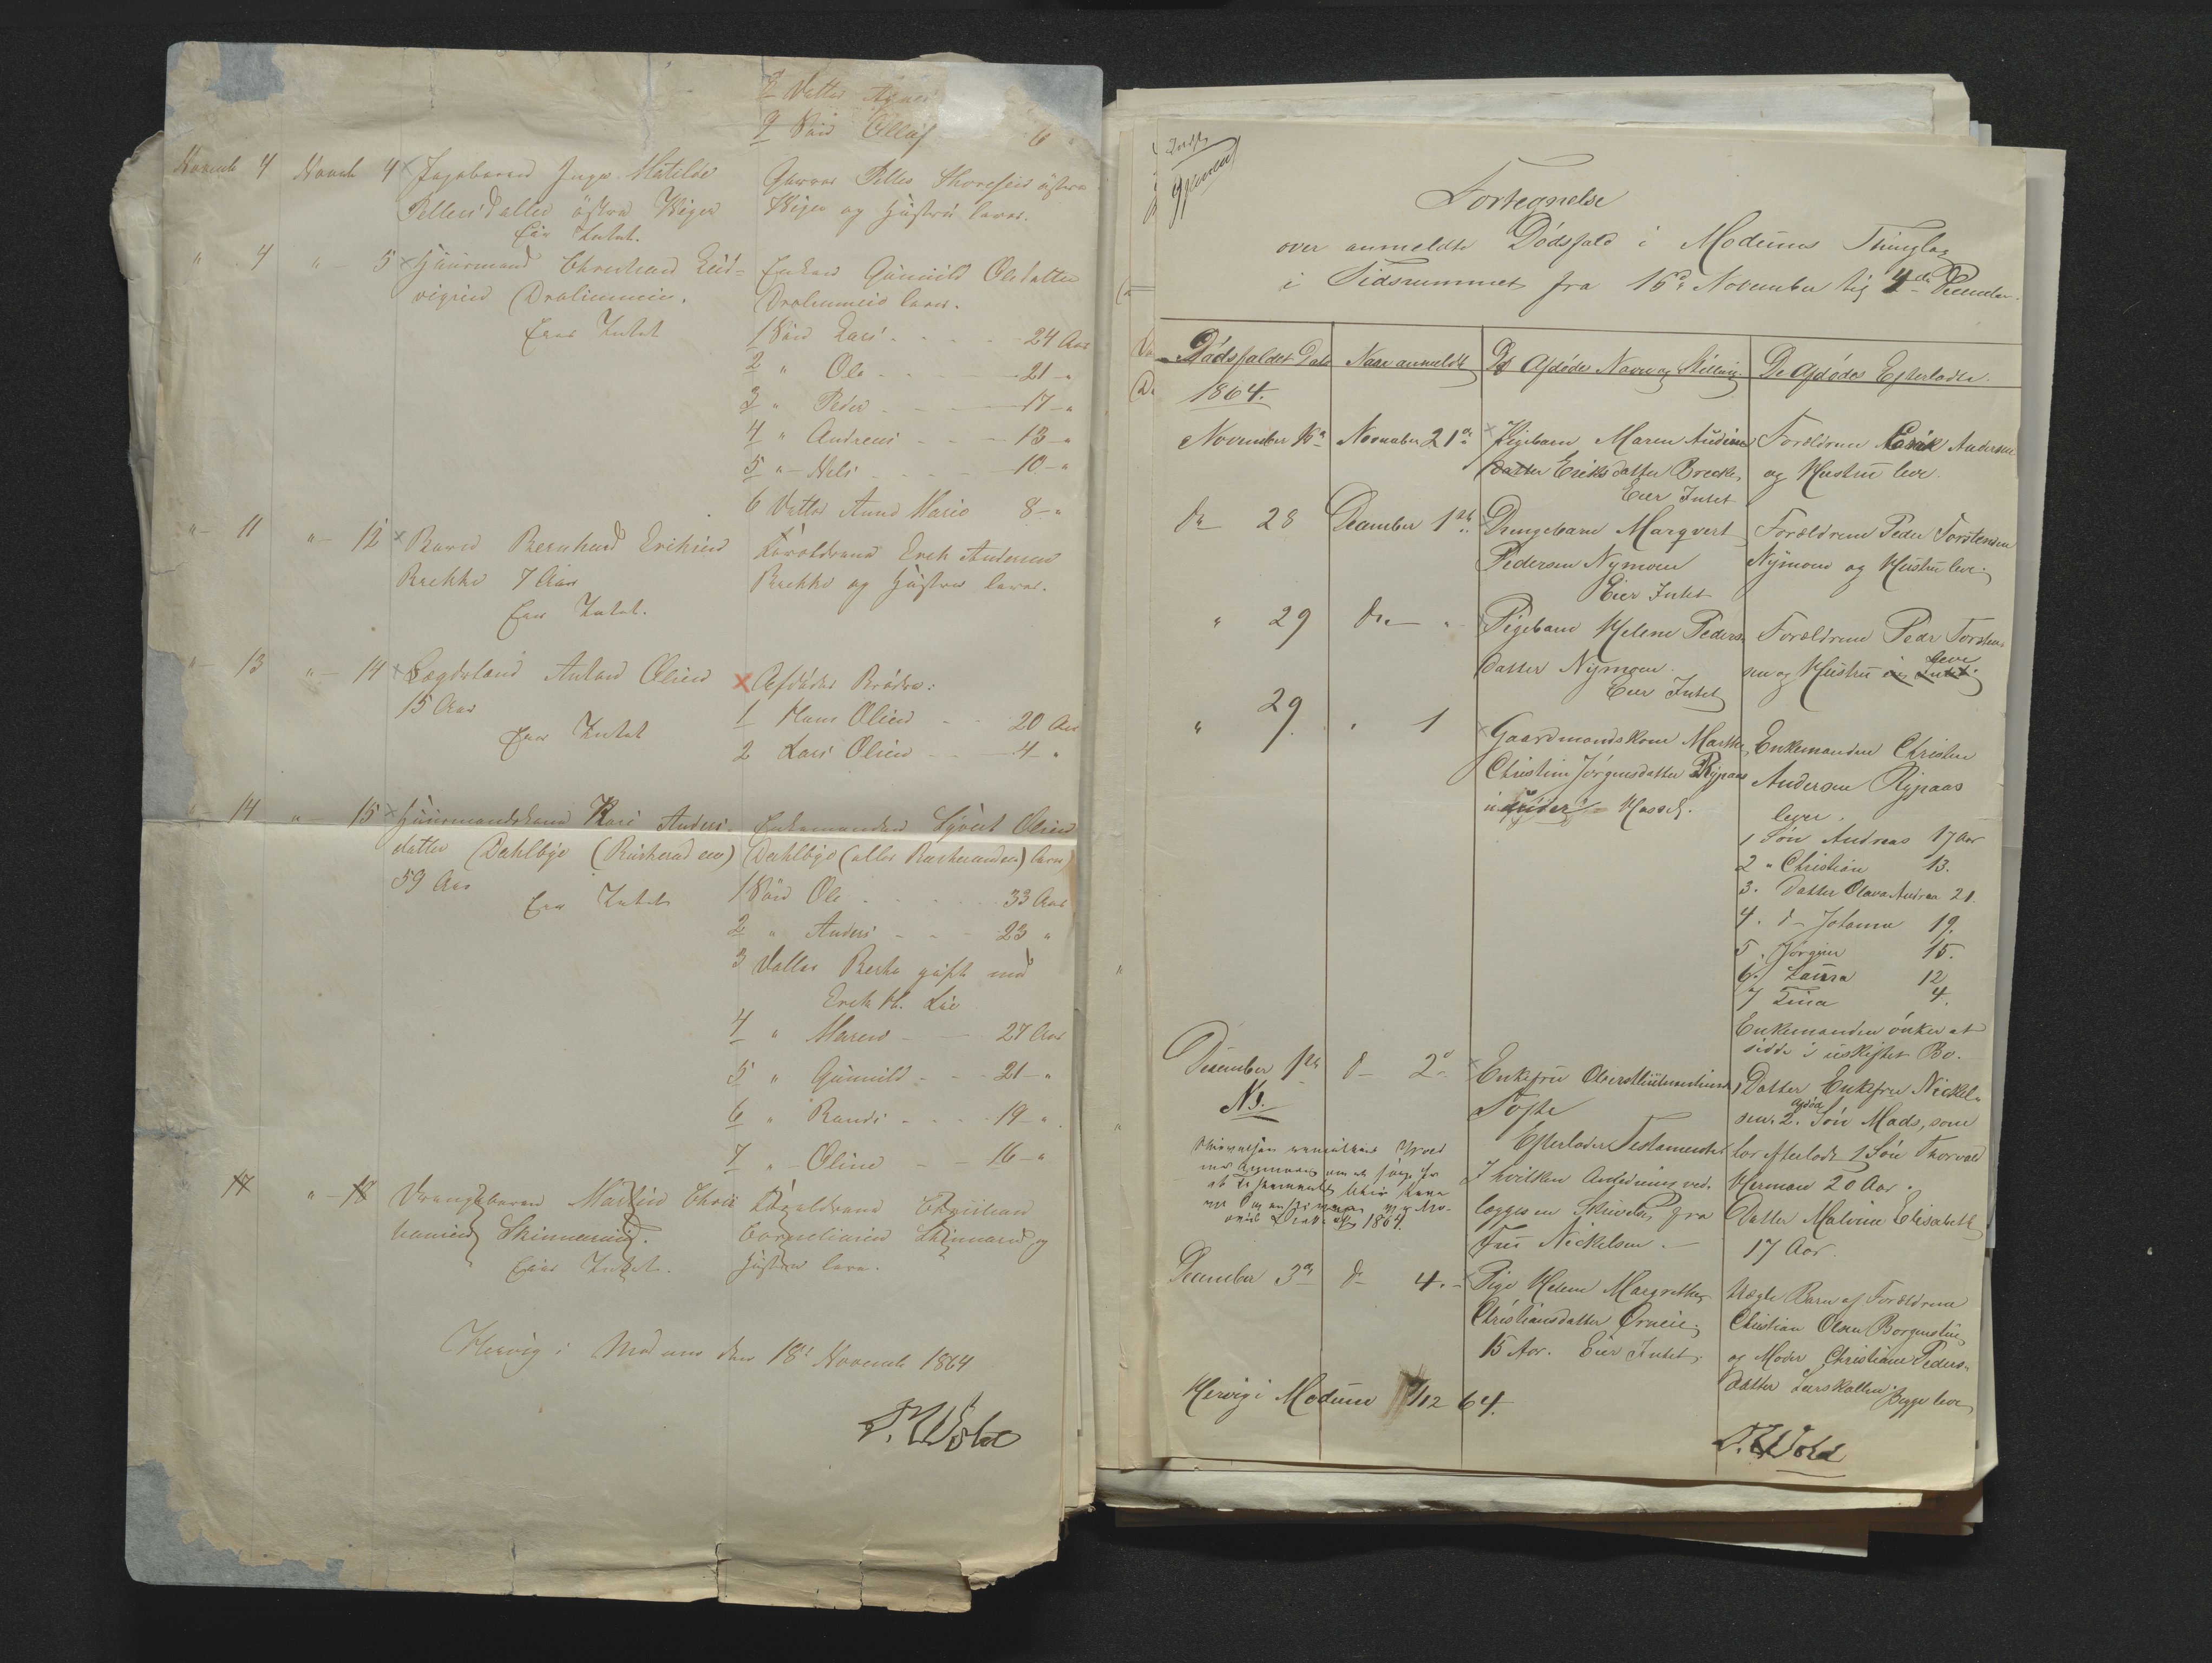 2 Datter Agnes
9 Søn Olluf 6 "
Novemb 4 Novemb 4 Pigebarnet Inge Matilde
Pettersdatter østre Wiger
Eier Intet.
Petter Thoresen østre
Wiger og Hustru lever.
" 4 " 5 Huusmand Christian Lud=
vigsen Drolimmein.
Eier Intet
Enken Gunnild Olsdatter
Drolimmein lever.
1 Søn Lars 24 Aar
2 " Ole 21 "
3 " Peder 17 "
4 " Andreas 13 "
5 " Nils 10 "
6 Datter Anne Marie 8 "
" 11 " 12 Barn Bernhard Eriksen
Brekke 7 Aar
Eier Intet.
Forældrene Erik Andersen
Brekke og Hustru lever.
" 13 " 14 Lægdslem Anton Olsen
15 Aar
Eier Intet
Afdødes Brødre:
1 Hans Olsen 20 Aar
2 Lars Olsen 4 "
" 14 " 15 Huusmandskone Kari Anders-
datter Dahlbye (Ruskerudeie)
59 Aar
Eier Intet
Enkemanden Syvert Olsen
Dahlbye (eller Ruskerudeie) lever
1 Søn Ole 33 Aar
2 " Anders 23 "
3 Datter Berthe gift med
Erik H. Lie
4 " Maren 27 Aar
5 " Gunnild 21 "
6 " Randi 19 "
7 " Oline 16 "
17 " 18 Drengebarnet Martin Chris
tiansen Skinnerud.
Eier Intet.
Forældrene Christian
Corneliusen Skinnerud og
Hustru lever.
Hervig i Modum den 18de Novemb 1864
T. Wold
Fortegnelse
over anmeldte Dødsfald i Modums Thinglag
i Tidsrummet fra 16de November til 4de December.
Dødsfaldets Dato Naar anmeldt De Afdødes Navn og Stilling De Afdødes Efterladte.
1864.
November 16de November 21de Pigebarn Maren Audine
datter Eriksdatter Brecke,
Eier Intet
Forældrene Erik Andersen
og Hustru leve.
do 28 December 1ste Drengebarn Marqvert
Pedersen Nymoen
Eier Intet
Forældrene Peder Torstensen
Nymoen og Hustru leve.
" 29 do " Pigebarn Helene Peders-
datter Nymoen.
Eier Intet
Forældrene Peder Torsten-
sen og Hustru leve
" 29. " 1 Gaardmandskone Marthe
Christine Jørgensdatter Rypaas
under Hassel.
Enkemanden Christen
Andersen Rypaas
lever.
1 Søn Andreas 17 Aar
2 " Christian 13.
3. Datter Olava Andrea 21.
4. do Johanne 19.
5. Jørgine 15.
6. Laura 12
7 Lina 4.
Enkemanden ønker at
sidde i uskiftet Bo.
December 1ste do 2de Enkefru Oberstlieutnantinde
Tofte
Efterlader Testamente
I hvilken Anledning ved-
lægges en Skrivelse fra
Fru Nickelsen.
1 Datter Enkefru Nickel-
sen. 2. afdøde Søn Mads, som
har efterladt 1 Søn Thorvald
Herman 20 Aar.
Datter Malvine Elisabeth
17 Aar.
NB.
1864.
December 3de do 4. Pige Helene Margrethe
Christiansdatter Ørneie.
15 Aar. Eier Intet.
Uægte Barn af Forældrene
Christian Olsen Borgerstue
og Moder Christiane Peders-
datter Leerskallen. Begge leve
Hervig i Modum /12 64.
T. Wold